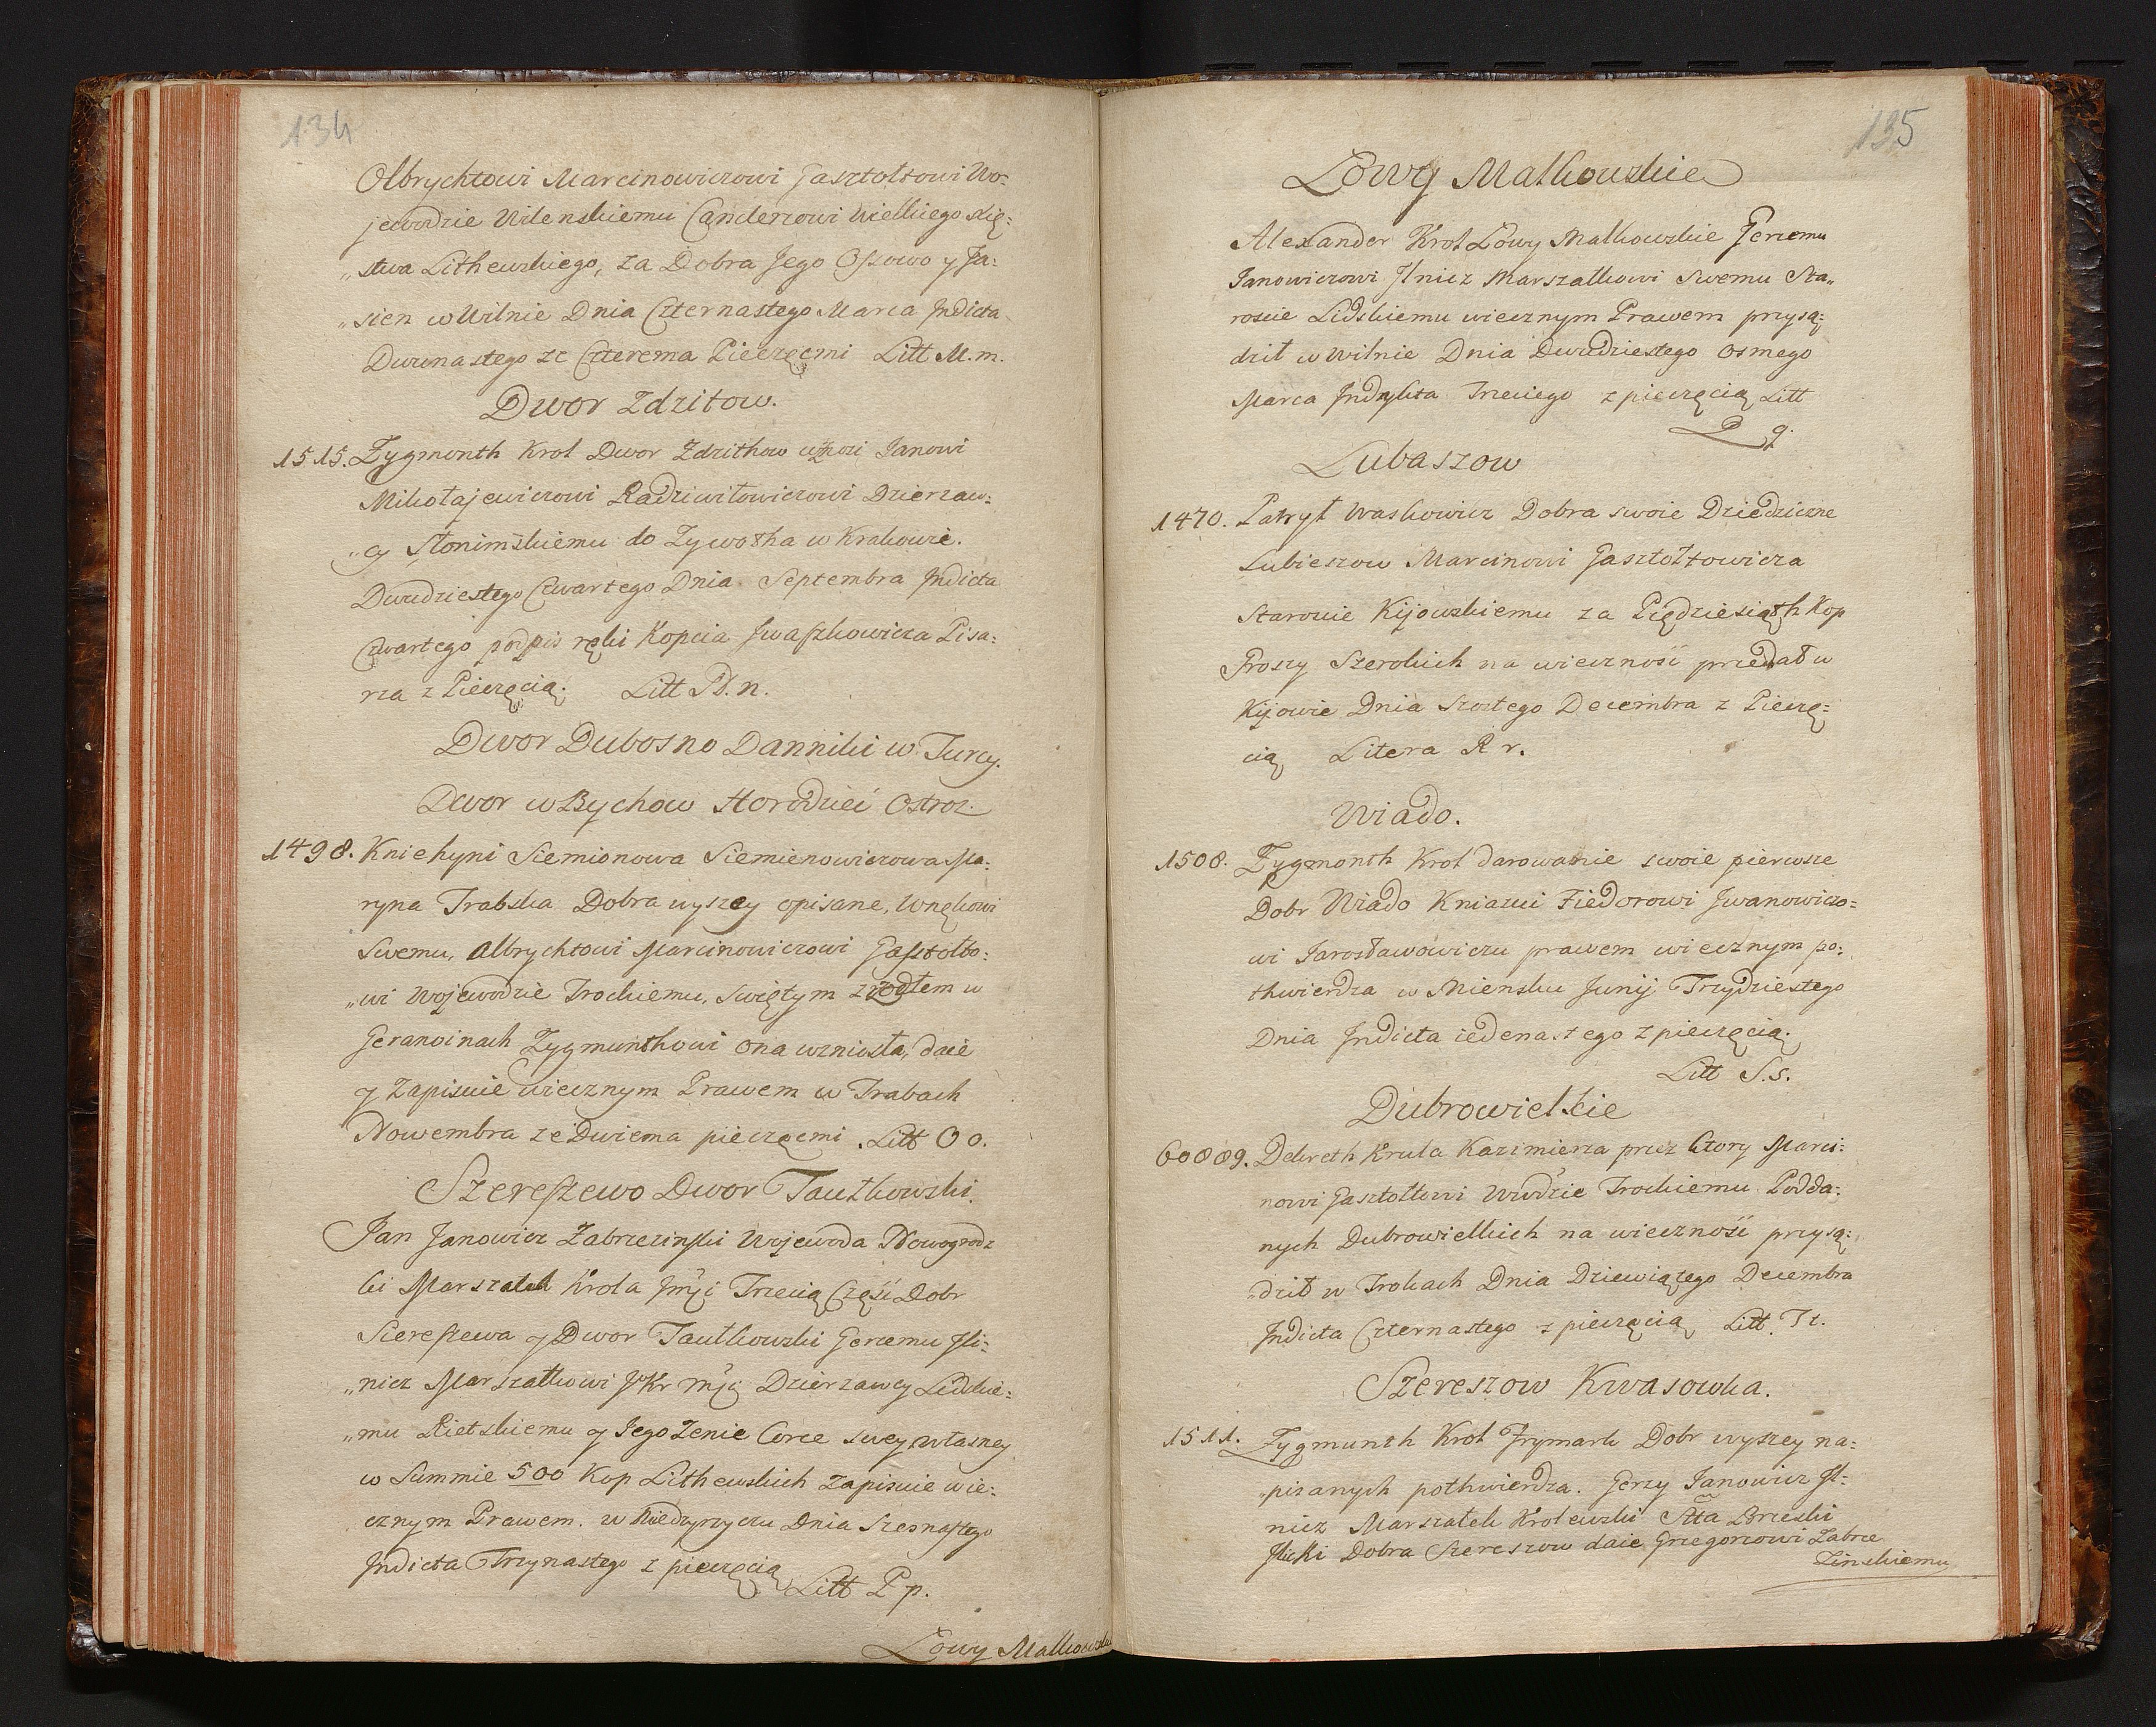 134
Olbrychtowi Marcinowiczowi Gasztołtowi Wo=
jewodzie Wilenskiemu Canclerzowi Wielkiego Xię=
„stwa Lithewskiego, za Dobra Jego Oszowo y Ja=
„sien w Wilnie Dnia Czternastego Marca Indicta
Dwunastego ze Czterema Pieczęcmi Litt M. m.
Dwor Zdzitow.
1515. Zygmonth Krol Dwor Zdzithow Janowi
Mikołajewiczowi Radziwiłowiczowi Dzierzaw=
„cy Słonimskiemu do Zywotha w Krakowie.
Dwudziestego Czwartego Dnia Septembra Indicta
Czwartego podpis ręki Kopcia Iwaszkowicza Pisa=
rza z Pieczęcią. Litt N. n.
Dwor Dubosno Danniki w Turcy.
Dwor w Bychow Horodziec Ostroz.
1498. Kniehyni Siemionowa Siemienowiczowa Ma=
ryna Trabska Dobra wyszey opisane, Wnękowi
Swemu, Albrychtowi Marcinowiczowi Gasztołto=
„wi Wojewodzie Trockiemu, swiętym w
Geranoinach Zygmunthowi ona wzniosła, daie
y Zapisuie wiecznym Prawem w Trabach
Nowembra ze Dwiema pieczęcmi. Litt O o.
Szereszewo Dwor Tautkowski.
Jan Janowicz Zabrzezinski Wojewoda Nowogrodz
ki Marszałek Krola Jmći Trzecią Częśc Dobr
Siereszewa y Dwor Tautkowski Gerzemu Ili=
„nicz Marszałkowi JKr mći Dzierzawcy Lidzkie=
„mu Bielskiemu y Jego Zenie Corce swey własney
w Summie 500 Kop Lithewskich Zapisuie wie=
cznym Prawem. w Miedzyrzyczu Dnia Szesnastego
Indicta Trzynastego z pieczęcią
Litt P p.
Łowy Malkowskie
135
Łowy Malkowskie
Alexander Krol Łowy Malkowskie Gerzemu
Janowiczowi Ilnicz Marszałkowi Swemu Sta„
roscie Lidskiemu wiecznym Prawem przysą=
dził w Wilnie Dnia Dwudziestego Osmego
Marca Indykta Trzeciego z pieczęcią Litt
Q q.
Lubaszow
1470. Patryk Waskowicz Dobra swoie Dziedziczne
Lubieszow Marcinowi Gasztołtowicza
Staroscie Kijowskiemu za Pięcdziesiąth Kop
Groszy Szerokich na wiecznośc przedał w
Kijowie Dnia Szostego Decembra z Pieczę=
cią Litera R r.
Wiado.
1508. Zygmonth Krol darowanie swoie pierwsze
Dobr Wiado Kniazui Fiedorowi Iwanowiczo=
wi Jarosławowiczu prawem wiecznym po=
thwierdza w Miensku Junij Trzydziestego
Dnia Indicta iedenastego z pieczęcią.
Litt S. s.
Dubrowielkie
60889. Dekreth Krula Kazimierza przez ktory Marci=
nowi Gasztołtowi Wwdzie Trockiemu Podda=
nych Dubrowielkich na wiecznośc przysą=
„dził w Trokach Dnia Dziewiątego Decembra
Indicta Czternastego z pieczęcią Litt. T t.
Szereszow Kwasowka.
1511. Zygmunth Krol Frymark Dobr wyszey na=
„pisanych pothwierdza. Gerzy Janowicz Il=
nicz Marszałek Krolewski Stta Brzeski
Dobra Szereszow daie Grzegorzowi Zabrze
Zinskiemu